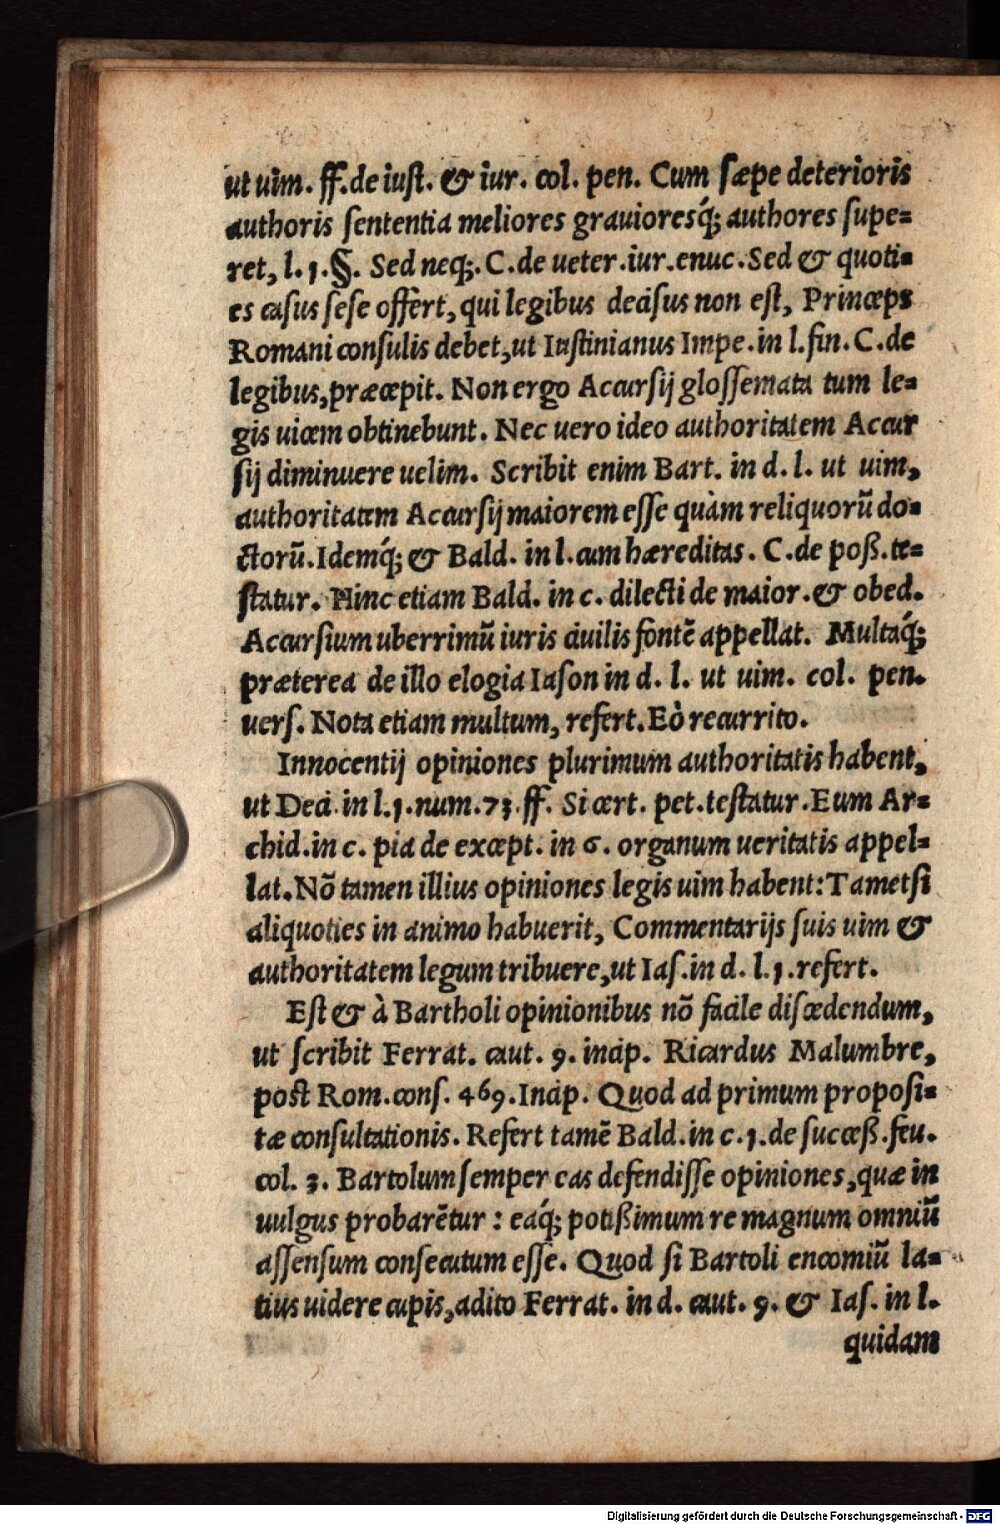 ut uim. ff. de iust. & iur. col. pen. Cum sæpe deterioris
authoris sententia meliores grauioresq́; authores supe=
ret, l. 1. §. Sed neq;. C. de ueter. iur. enuc. Sed & quoti=
es casus sese offert, qui legibus decisus non est, Princeps
Romani consulis debet, ut Iustinianus Impe. in l. fin. C. de
legibus, præcepit. Non ergo Accursij glossemata tum le=
gis uicem obtinebunt. Nec uero ideo authoritatem Accur
sij diminuere uelim. Scribit enim Bart. in d. l. ut uim,
authoritatem Accursij maiorem esse quàm reliquorũ do=
ctorũ. Idemq́; & Bald. in l. cum hæreditas. C. de poß. te=
statur. Hinc etiam Bald. in c. dilecti de maior. & obed.
Accursium uberrimũ iuris ciuilis fontẽ appellat. Multaq́;
præterea de illo elogia Iason in d. l. ut uim. col. pen.
uers. Nota etiam multum, refert. Eò recurrito.
Innocentij opiniones plurimum authoritatis habent,
ut Deci. in l. 1. num. 73. ff. Si cert. pet. testatur. Eum Ar=
chid. in c. pia de except. in 6. organum ueritatis appel=
lat. Nõ tamen illius opiniones legis uim habent: Tametsi
aliquoties in animo habuerit, Commentarijs suis uim &
authoritatem legum tribuere, ut Ias. in d. l. 1. refert.
Est & à Bartholi opinionibus nõ facile discedendum,
ut scribit Ferrat. caut. 9. incip. Ricardus Malumbre,
post Rom. cons. 469. Incip. Quod ad primum proposi=
tæ consultationis. Refert tamẽ Bald. in c. 1. de succeß. feu.
col. 3. Bartolum semper eas defendisse opiniones, quæ in
uulgus probarẽtur : eaq́; potißimum re magnum omniũ
assensum consecutum esse. Quod si Bartoli encomiũ la=
tius uidere cupis, adito Ferrat. in d. caut. 9. & Ias. in l.
quidam
Digitalisierung gefördert durch die Deutsche Forschungsgemeinschaft - DFG